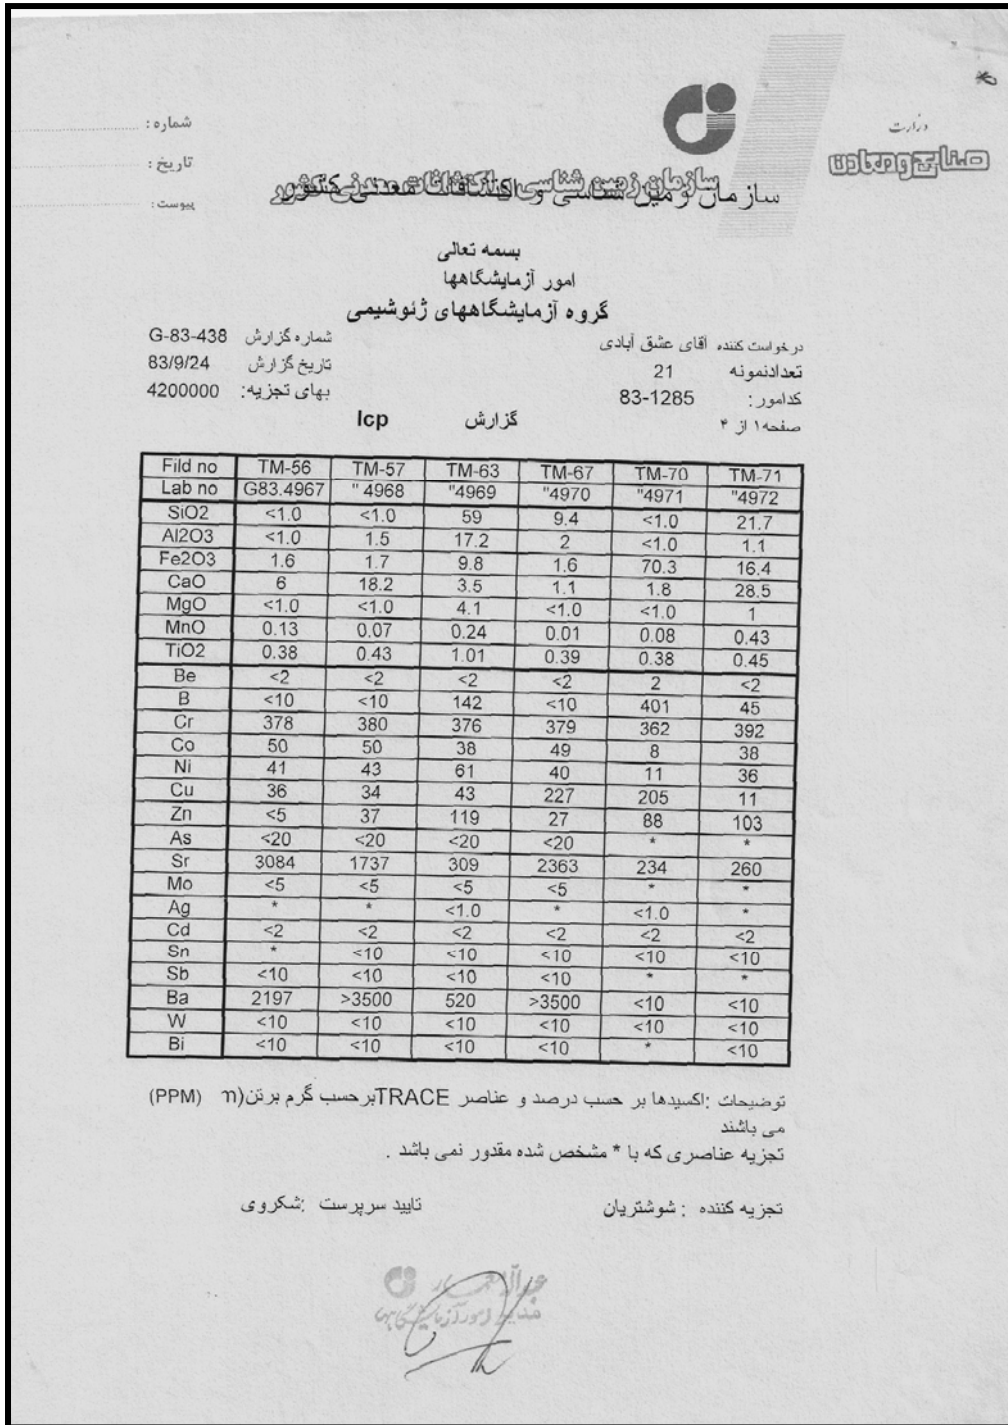 وزارت
صنایع و معادن
شماره :
تاریخ :
پیوست :
سازمان زمین شناسی و اکتشافات معدنی کشور
سازمان زمین شناسی و اکتشافات معدنی کشور
بسمه تعالی
امور آزمایشگاهها
گروه آزمایشگاههای ژئوشیمی
درخواست کننده آقای عشق آبادی شماره گزارش G-83-438
تعدادنمونه 21 تاریخ گزارش 83/9/24
کدامور : 83-1285 بهای تجزیه: 4200000
صفحه ۱ از ۴ گزارش Icp
Fild no TM-56 TM-57 TM-63 TM-67 TM-70 TM-71
Lab no G83.4967 " 4968 "4969 "4970 "4971 "4972
SiO2 <1.0 <1.0 59 9.4 <1.0 21.7
Al2O3 <1.0 1.5 17.2 2 <1.0 1.1
Fe2O3 1.6 1.7 9.8 1.6 70.3 16.4
CaO 6 18.2 3.5 1.1 1.8 28.5
MgO <1.0 <1.0 4.1 <1.0 <1.0 1
MnO 0.13 0.07 0.24 0.01 0.08 0.43
TiO2 0.38 0.43 1.01 0.39 0.38 0.45
Be <2 <2 <2 <2 2 <2
B <10 <10 142 <10 401 45
Cr 378 380 376 379 362 392
Co 50 50 38 49 8 38
Ni 41 43 61 40 11 36
Cu 36 34 43 227 205 11
Zn <5 37 119 27 88 103
As <20 <20 <20 <20 * *
Sr 3084 1737 309 2363 234 260
Mo <5 <5 <5 <5 * *
Ag * * <1.0 * <1.0 *
Cd <2 <2 <2 <2 <2 <2
Sn * <10 <10 <10 <10 <10
Sb <10 <10 <10 <10 * *
Ba 2197 >3500 520 >3500 <10 <10
W <10 <10 <10 <10 <10 <10
Bi <10 <10 <10 <10 * <10
توضیحات :اکسیدها بر حسب درصد و عناصر TRACEبرحسب گرم برتن(m (PPM)
می باشند
تجزیه عناصری که با * مشخص شده مقدور نمی باشد .
تجزیه کننده : شوشتریان تایید سرپرست :شکروی
مدیر امور آزمایشگاهها